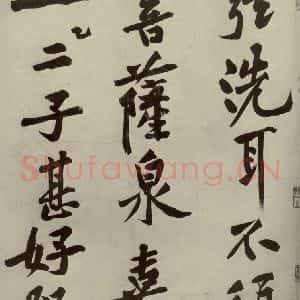 弦洗耳不須
菩薩泉嘉
二子甚好
Shufawang.CN